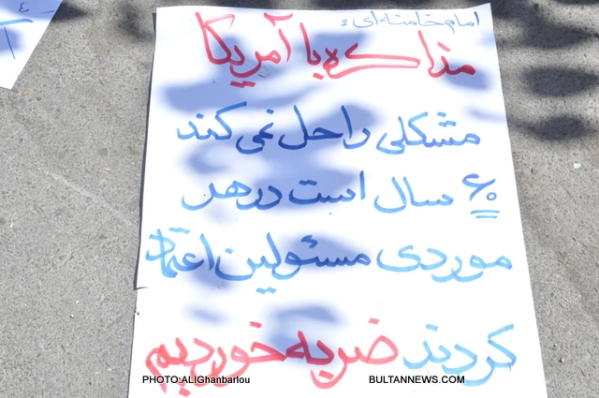 امام خامنه‌ای:
مذاکره با آمریکا
مشکلی را حل نمی کند
۶۰ سال است در هر
موردی مسئولین اعتماد
کردند ضربه خوردیم
PHOTO:ALIGhanbarlou BULTANNEWS.COM